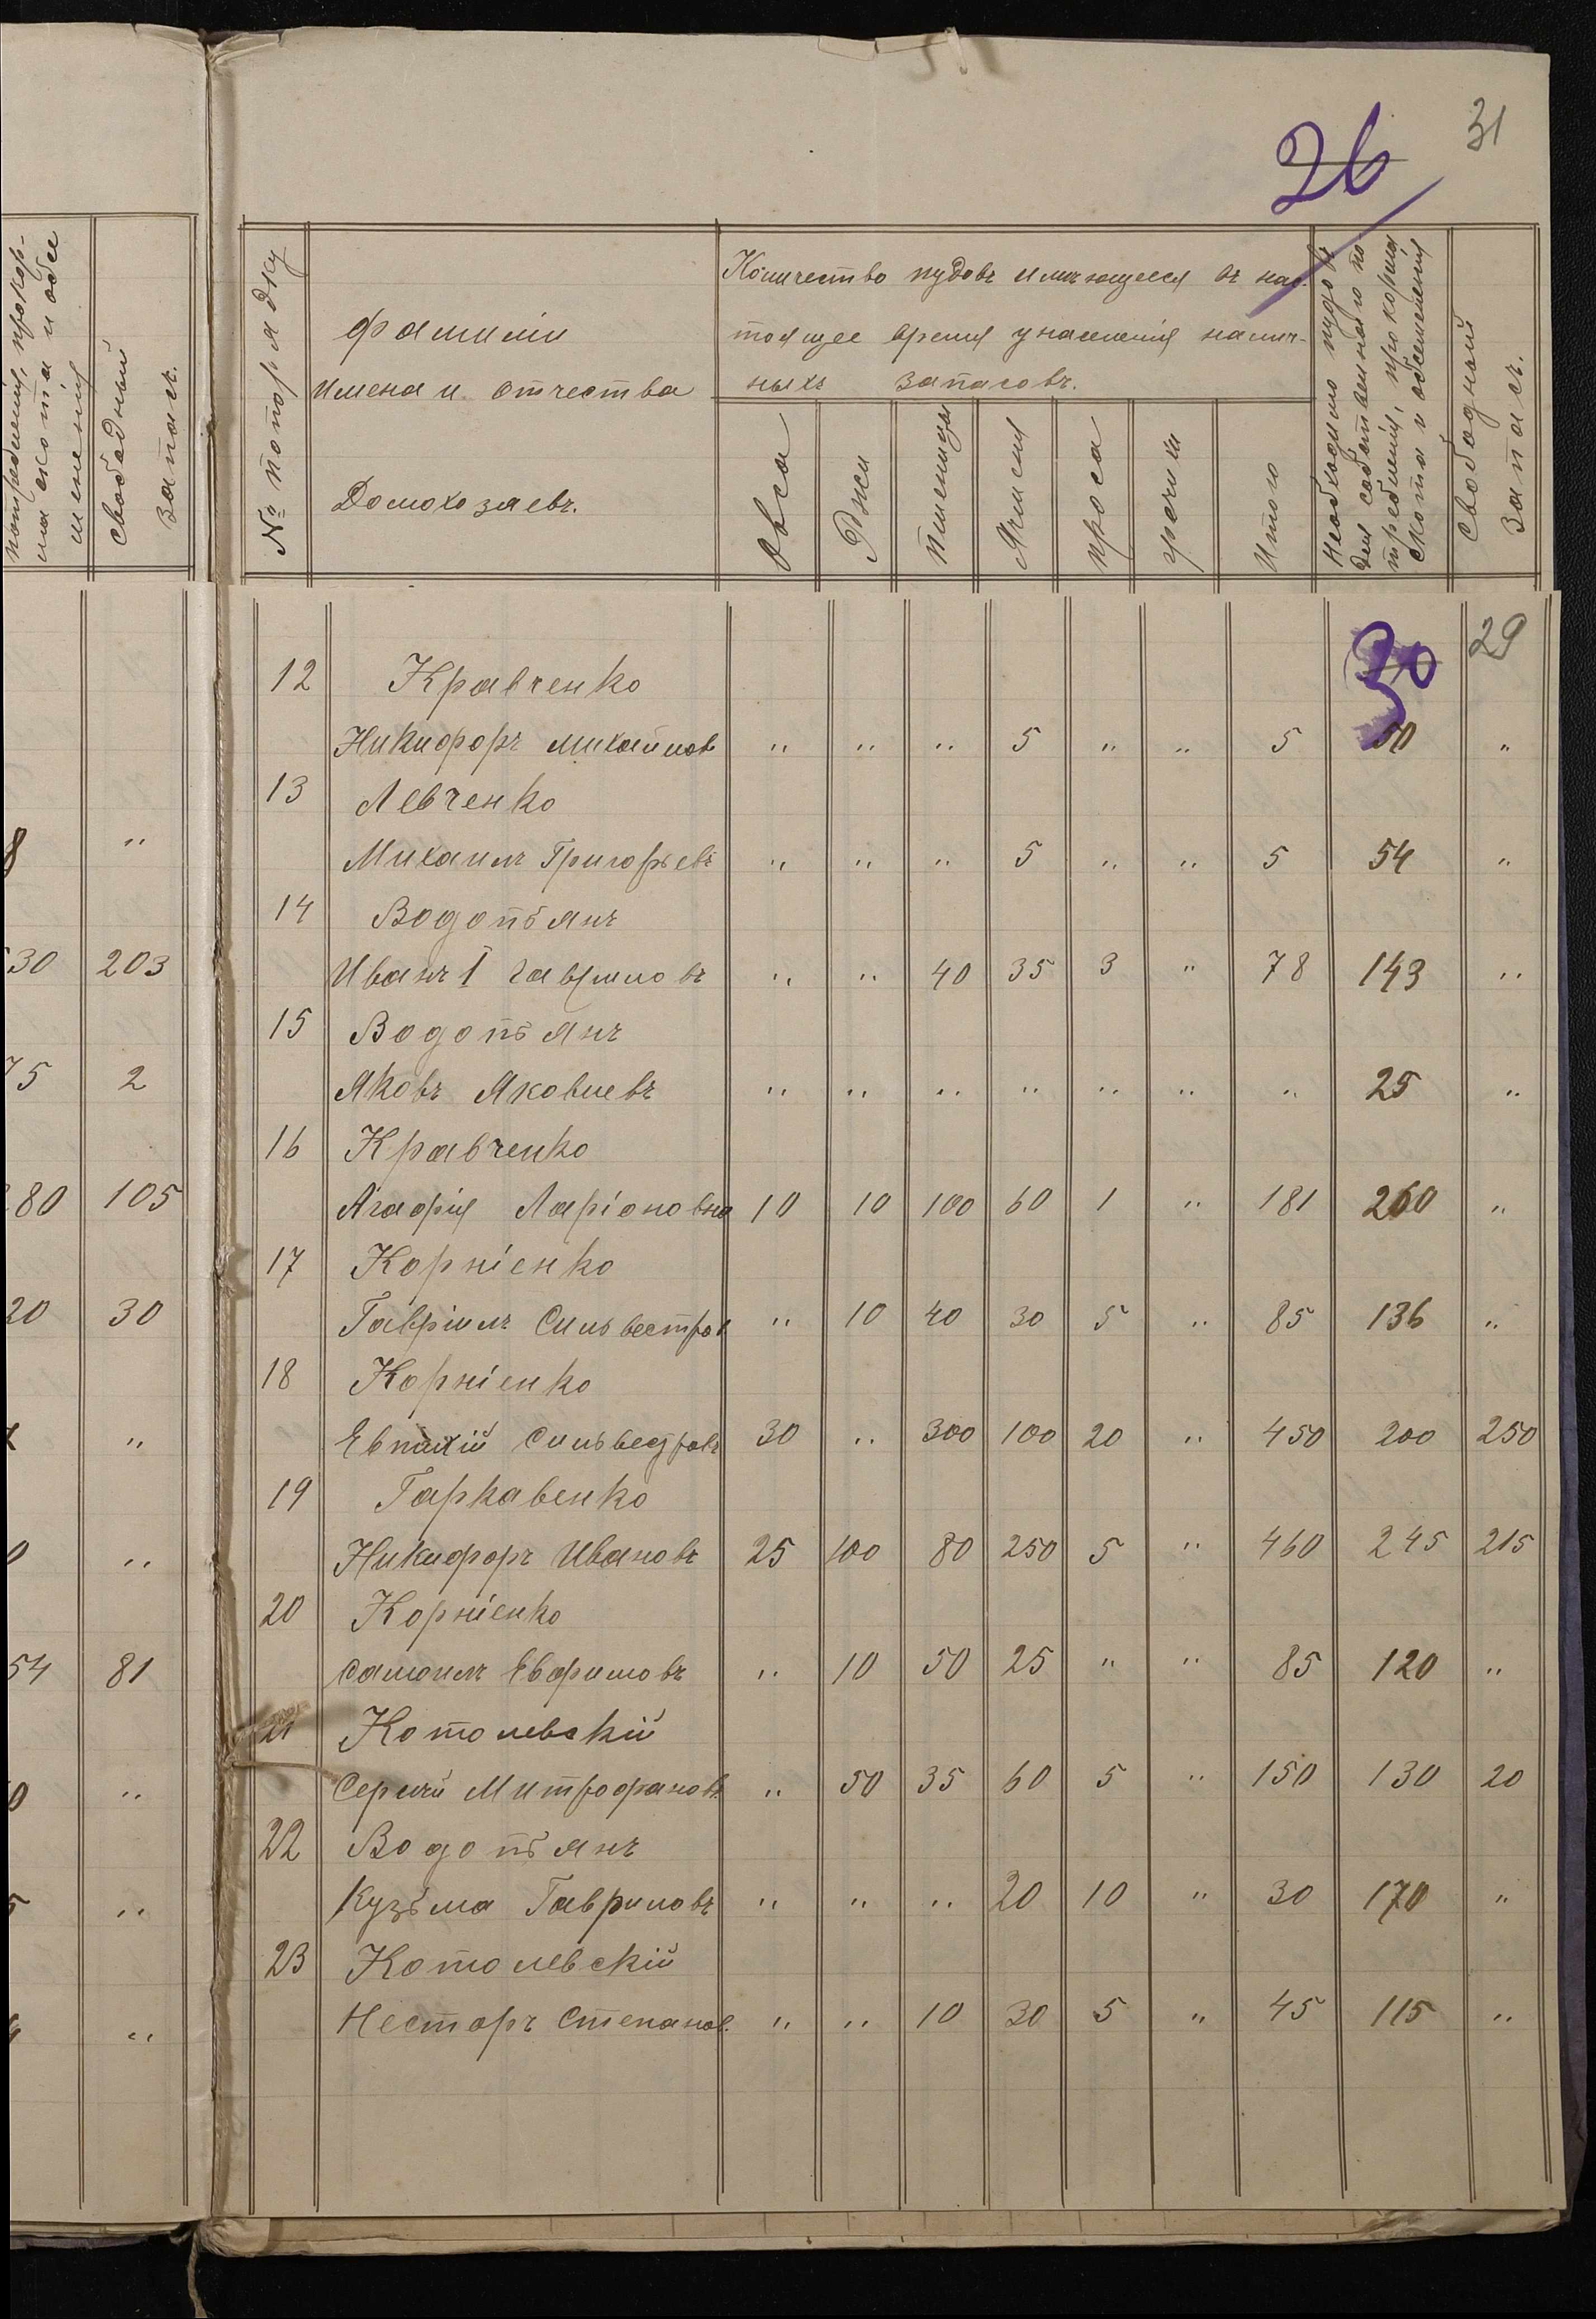 потребленія, прокор-
ма скота и обсе
мененія
свободный
запасъ.
203
2
105
20 30
54 81
26 31
№ по порядку
фамиліи
имена и отчества
Домохозяевъ.
Количество пудовъ имеющееся въ нас-
тоящее время у населенія налич-
ныхъ запасовъ.
Овса
Ржи
пшеницы
Ячменя
проса
гречки
итого
Необходимо пудовъ
для собственнаго по
требленія, прокорма
скота и обсемененія
Свободный
запасъ.
30 29
12 Кравченко
Никифоръ Михайлов " " " 5 " " 5 50 "
13 Левченко
Михаилъ Григорьевъ " " " 5 " " 5 54 "
14 Водопьянъ
Иванъ I Гавриловъ " " 40 35 3 " 78 143 "
15 Водопьянъ
Яковъ Яковлевъ " " " " " " " 25 "
16 Кравченко
Агафія Ларіоновна 10 10 100 60 1 " 181 260 "
17 Корніенко
Гавріилъ Сильвестров " 10 40 30 5 " 85 136 "
18 Корніенко
Сильвестровъ 30 " 300 100 20 " 450 200 250
19 Гаркавенко
Никифоръ Ивановъ 25 100 80 250 5 " 460 245 215
20 Корніенко
Самоилъ Евфимовъ " 10 50 25 " " 85 120 "
21 Котолевскій
Сергій Митрофановъ " 50 35 60 5 " 150 130 20
22 Водопьянъ
Кузьма Гавриловъ " " " 20 10 " 30 170 "
23 Котолевскій
Несторъ Степанов. " " 10 30 5 " 45 115 "